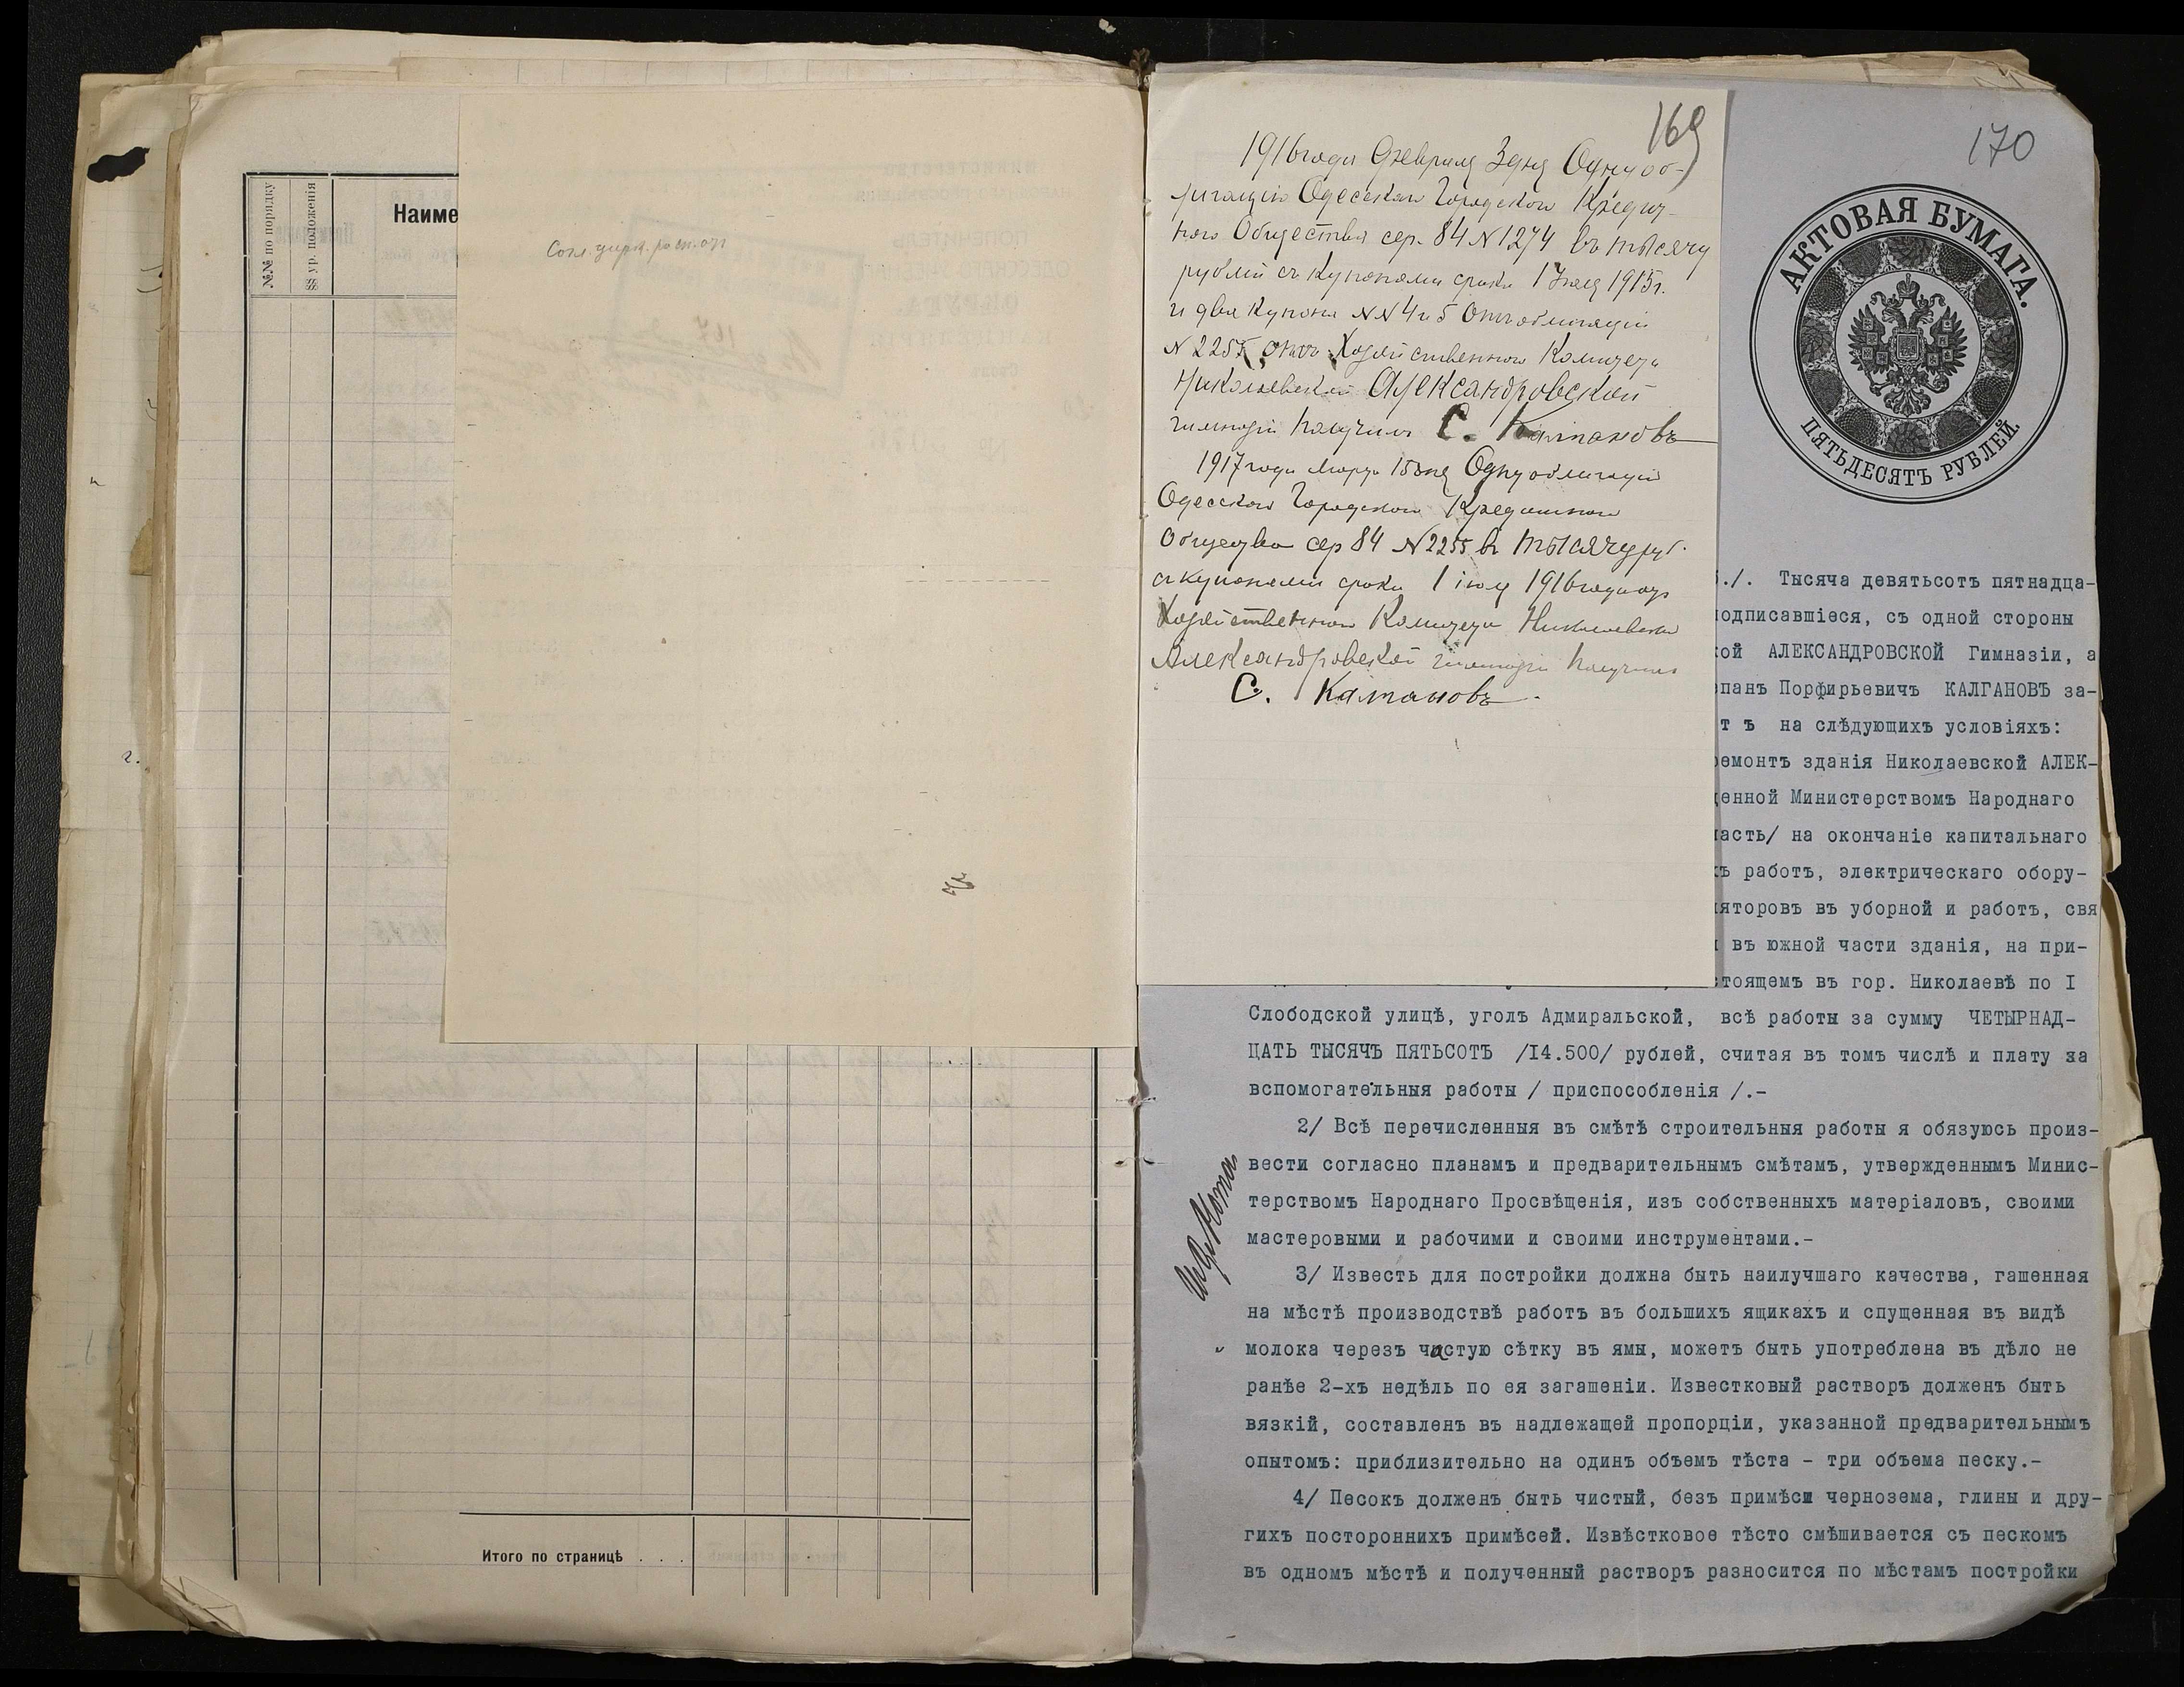 №№ по порядку
§§ ур. положенія
Наиме
Итого по страницѣ . . .
169
1916 года Февраля 3 дня Одну об-
лигацію Одесскаго Городского Кредит-
наго Общества сер. 84 N 1274 въ тысячу
рублей съ купонами срока 1 Іюля 1915 г.
и два купона NN 4 и 5 От облигаціи
N 2255 отъ Хозяйственнаго Комитета
Николаевской Александровской
гимназіи получилъ С. Калгановъ
1917 года Марта 15 дня Одну облигацію
Одесскаго Городского Кредитнаго
Общества сер 84 N 2255 въ тысячу руб.
съ купонами срока 1 іюля 1916 года отъ
Хозяйственнаго Комитета Николаевской
Александровской гимназіи получилъ
С. Калгановъ
170
АКТОВАЯ БУМАГА.
ПЯТЬДЕСЯТЪ РУБЛЕЙ
./. Тысяча девятьсотъ пятнадца-
подписавшіеся, съ одной стороны
кой АЛЕКСАНДРОВСКОЙ Гимназіи, а
епанъ Порфирьевичъ КАЛГАНОВЪ за-
т ъ на слѣдующихъ условіяхъ:
ремонтъ зданія Николаевской АЛЕК-
денной Министерствомъ Народнаго
часть/ на окончаніе капитальнаго
хъ работъ, электрическаго обору-
ляторовъ въ уборной и работъ, свя
въ южной части зданія, на при-
стоящемъ въ гор. Николаевѣ по I
Слободской улицѣ, уголъ Адмиральской, всѣ работы за сумму ЧЕТЫРНАД-
ЦАТЬ ТЫСЯЧЪ ПЯТЬСОТЪ /I4.500/ рублей, считая въ томъ числѣ и плату за
вспомогательныя работы / приспособленія /.-
2/ Всѣ перечисленныя въ смѣтѣ строительныя работы я обязуюсь произ-
вести согласно планамъ и предварительнымъ смѣтамъ, утвержденнымъ Минис-
терствомъ Народнаго Просвѣщенія, изъ собственныхъ матеріаловъ, своими
мастеровыми и рабочими и своими инструментами.-
3/ Известь для постройки должна быть наилучшаго качества, гашенная
на мѣстѣ производствѣ работъ въ большихъ ящикахъ и спущенная въ видѣ
молока черезъ частую сѣтку въ ямы, можетъ быть употреблена въ дѣло не
ранѣе 2-хъ недѣль по ея загашеніи. Известковый растворъ долженъ быть
вязкій, составленъ въ надлежащей пропорціи, указанной предварительнымъ
опытомъ: приблизительно на одинъ объемъ тѣста - три объема песку.-
4/ Песокъ долженъ быть чистый, безъ примѣси чернозема, глины и дру-
гихъ постороннихъ примѣсей. Извѣстковое тѣсто смѣшивается съ пескомъ
въ одномъ мѣстѣ и полученный растворъ разносится по мѣстамъ постройки